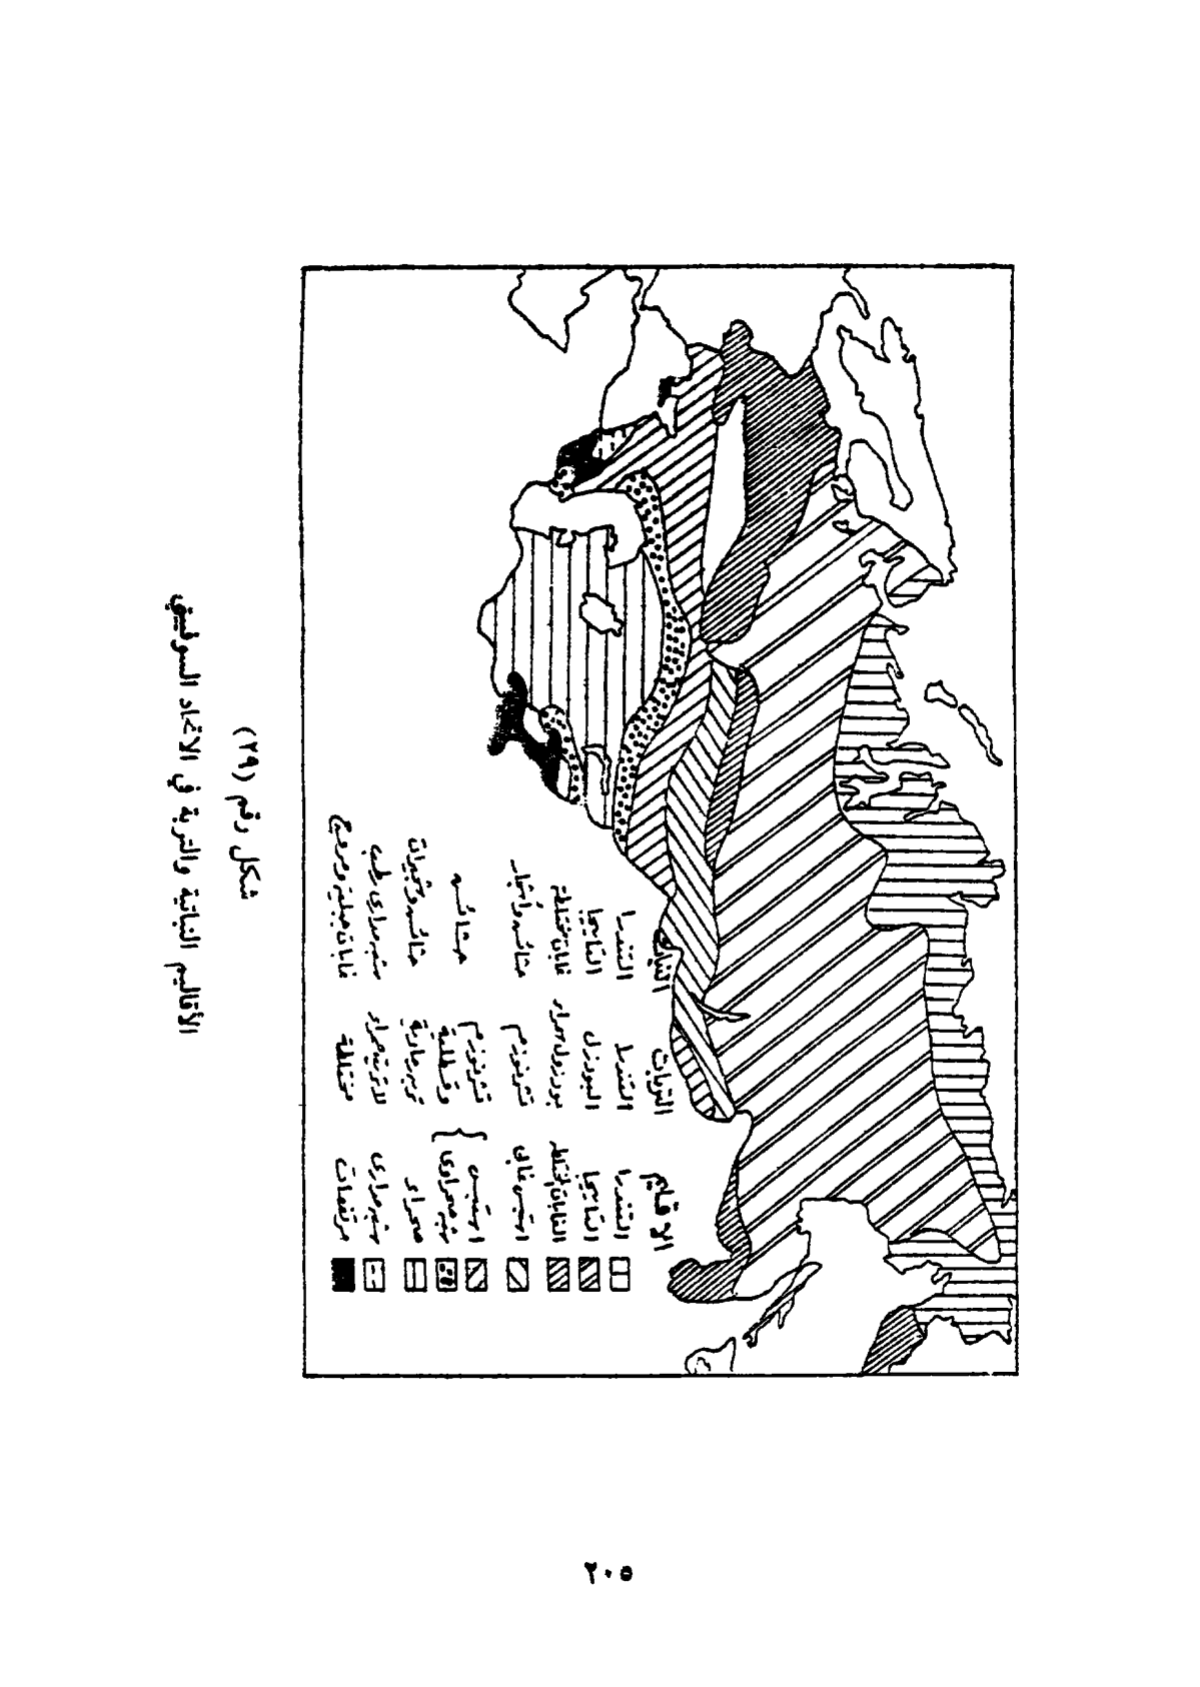 الاقليم التربات النبات
التندرا التندرا التندرا
التايجا البودزل التايجا
الغابات المختلطة بودزول سمراء غابات مختلطة
استبس غابي تشرنوزم حشائش وأشجار
استبس تشرنوزم حشائش
شبه صحراوي وقسطلية
صحراء تربة رمادية حشائش وشجيرات
شبه مداري لاتوتربة حمراء شبه مداري رطب
مرتفعات مختلطة غابات جبلية ومروج
شكل رقم (٢٩)
الأقاليم النباتية والتربة في الاتحاد السوفيتي
٢٠٥